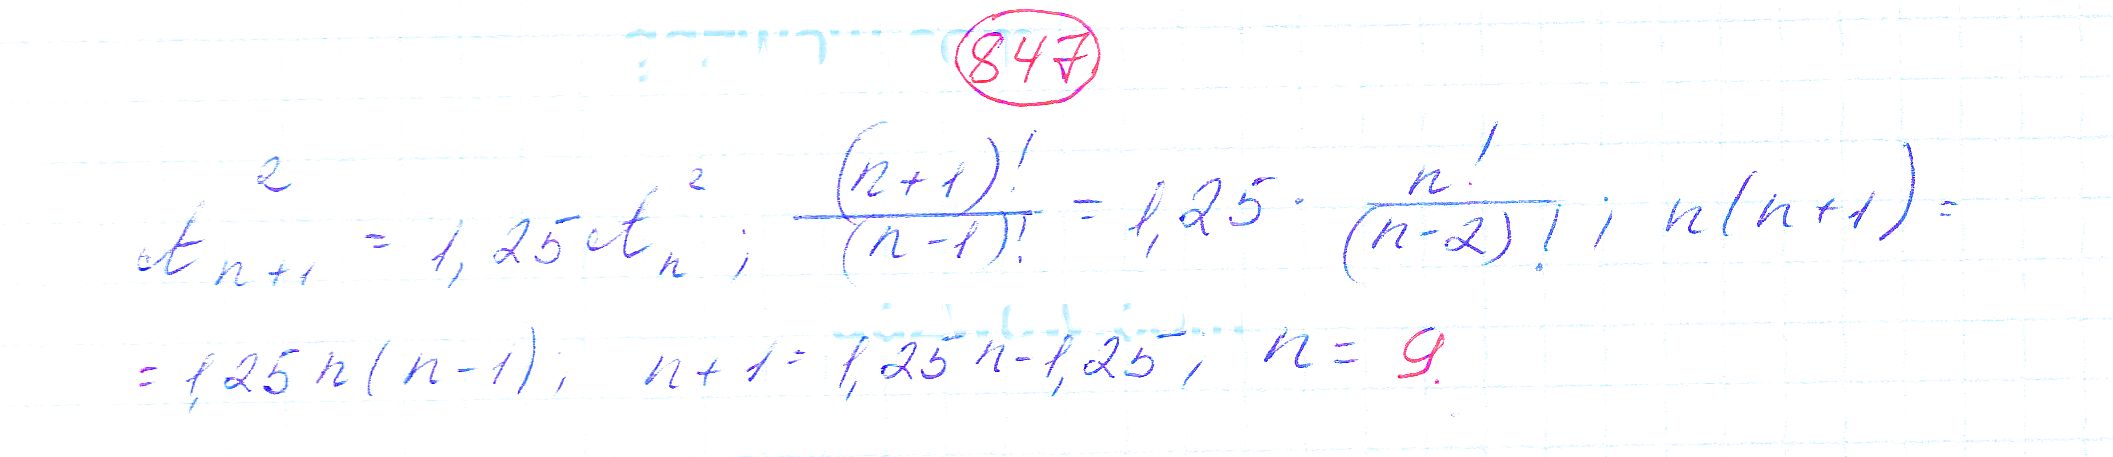 847
A²ₙ₊₁ = 1,25A²ₙ; (n+1)!/(n-1)! = 1,25 · n!/(n-2)!; n(n+1) =
= 1,25n(n-1); n+1 = 1,25n-1,25; n = 9.